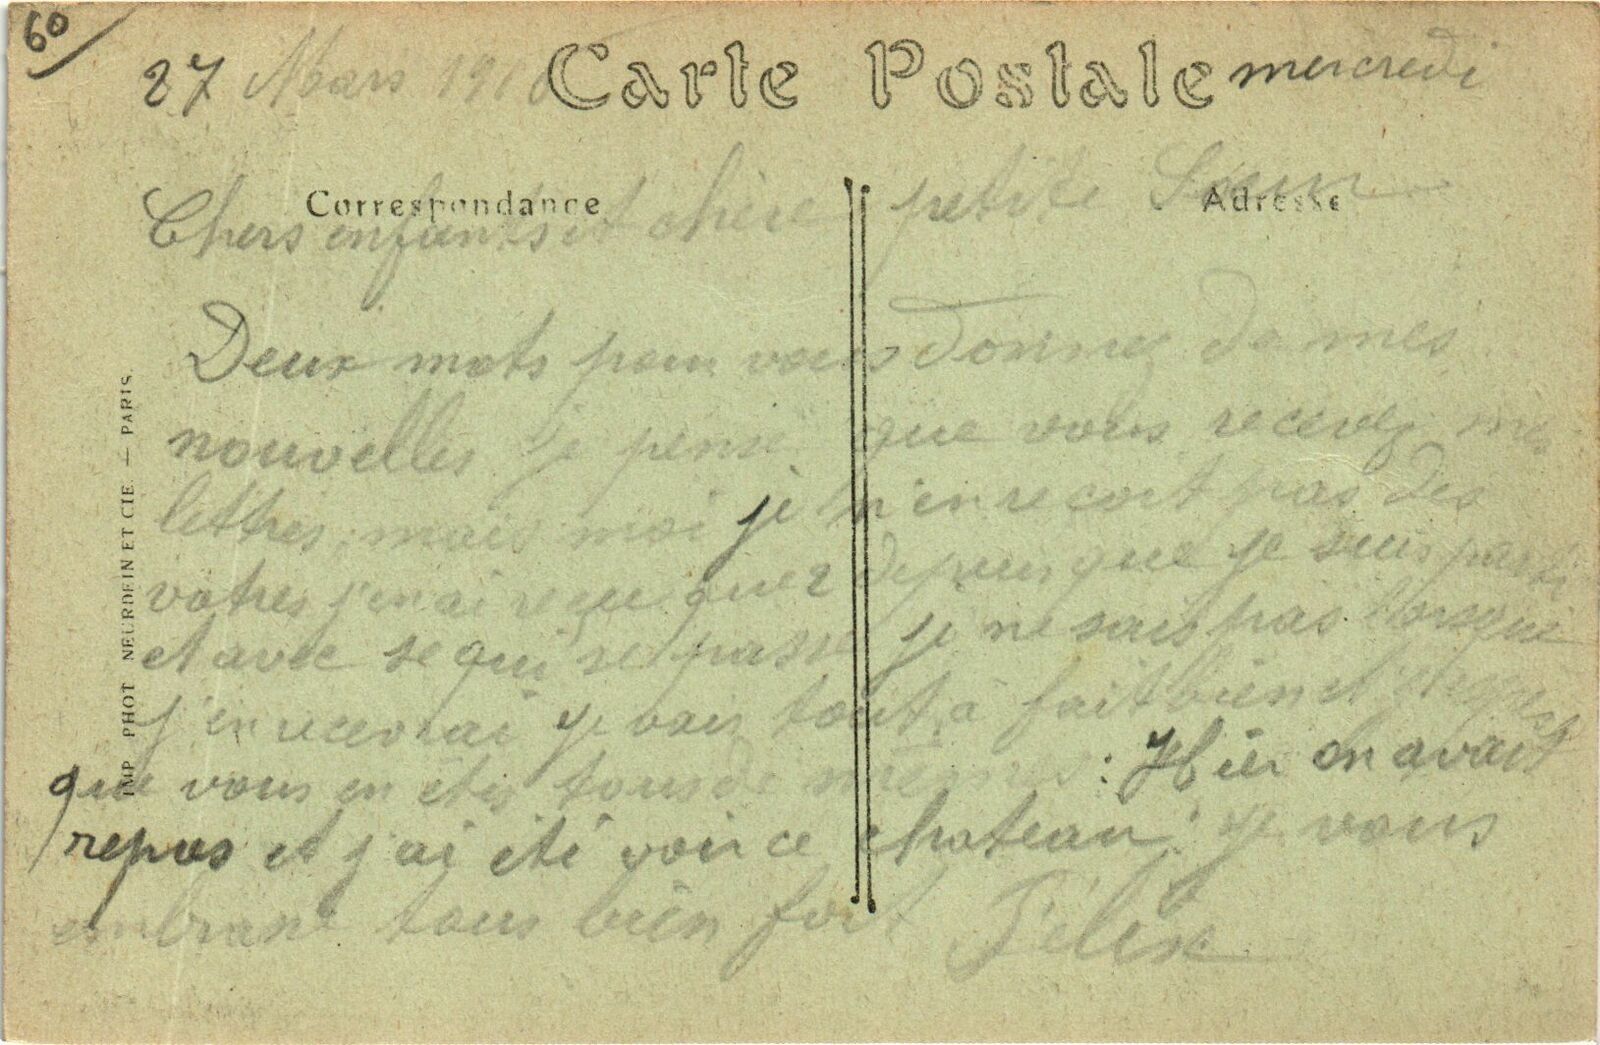 60
27 Mars 1918 Carte Postale mercredi
Correspondance Adresse
Chers enfants et chère petite Sœur
Deux mots pour vous donner de mes
nouvelles je pense que vous recevez mes
lettres, mais moi je n'en recoit pas des
votres j'en ai reçu que 2 depuis que je suis parti
et avec se qui se passe je ne sais pas lorsque
j'en recevrai je vais tout à fait bien et j'espère
que vous en êtes tous de mêmes : Hier on avait
repos et j'ai été voir ce chateau : je vous
embrasse tous bien fort Félix
IMP. PHOT. NEURDEIN ET CIE. — PARIS.